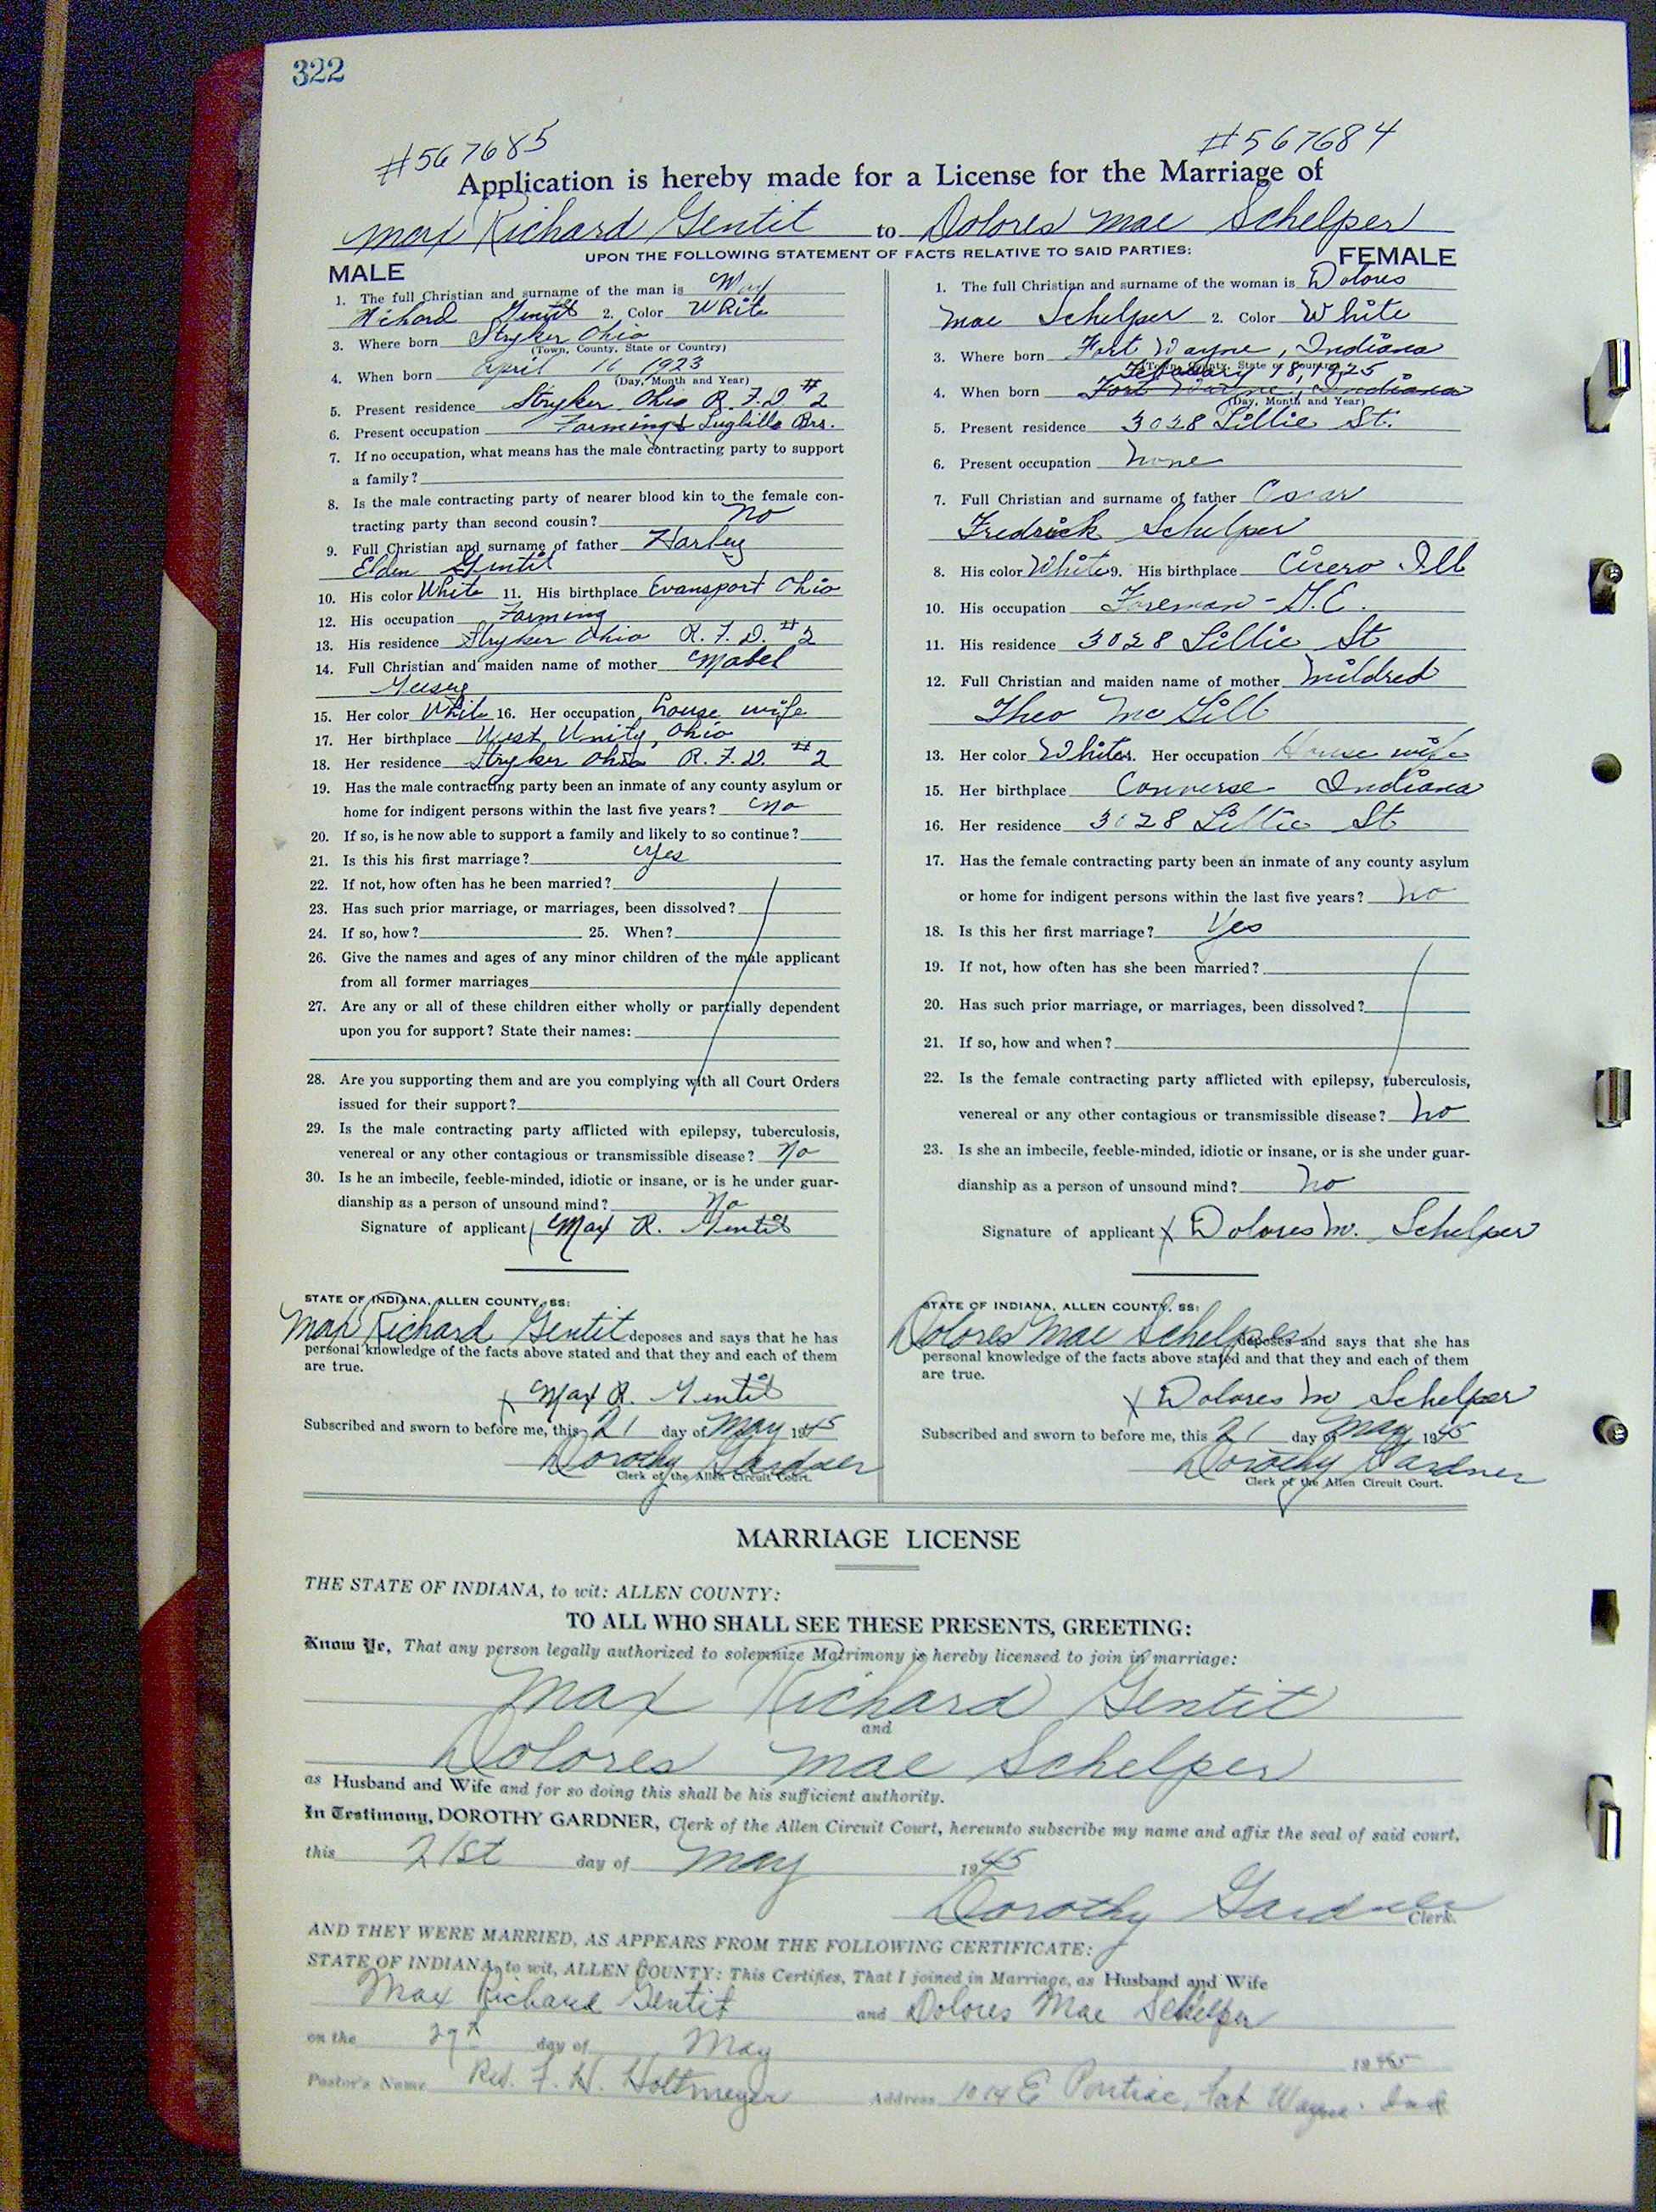 322
#567685 #567684
Application is hereby made for a License for the Marriage of
Max Richard Gentit to Dolores Mae Schelper
UPON THE FOLLOWING STATEMENT OF FACTS RELATIVE TO SAID PARTIES:
MALE
1. The full Christian and surname of the man is Max
Richard Gentit 2. Color White
3. Where born Stryker Ohio
(Town, County, State or Country)
4. When born April 11 1923
(Day, Month and Year)
5. Present residence Stryker Ohio R.F.D #2
6. Present occupation Farming & Bro.
7. If no occupation, what means has the male contracting party to support
a family?
8. Is the male contracting party of nearer blood kin to the female con-
tracting party than second cousin? No
9. Full Christian and surname of father Harley
Elden Gentit
10. His color White 11. His birthplace Evansport Ohio
12. His occupation Farming
13. His residence Stryker Ohio R.F.D. #2
14. Full Christian and maiden name of mother Mabel
15. Her color White 16. Her occupation house wife
17. Her birthplace West Unity, Ohio
18. Her residence Stryker Ohio R.F.D. #2
19. Has the male contracting party been an inmate of any county asylum or
home for indigent persons within the last five years? No
20. If so, is he now able to support a family and likely to so continue?
21. Is this his first marriage? Yes
22. If not, how often has he been married?
23. Has such prior marriage, or marriages, been dissolved?
24. If so, how? 25. When?
26. Give the names and ages of any minor children of the male applicant
from all former marriages
27. Are any or all of these children either wholly or partially dependent
upon you for support? State their names:
28. Are you supporting them and are you complying with all Court Orders
issued for their support?
29. Is the male contracting party afflicted with epilepsy, tuberculosis,
venereal or any other contagious or transmissible disease? No
30. Is he an imbecile, feeble-minded, idiotic or insane, or is he under guar-
dianship as a person of unsound mind? No
Signature of applicant Max R. Gentit
STATE OF INDIANA, ALLEN COUNTY, SS:
Max Richard Gentit deposes and says that he has
personal knowledge of the facts above stated and that they and each of them
are true.
x Max R. Gentit
Subscribed and sworn to before me, this 21 day of May 1945
Dorothy Gardner
Clerk of the Allen Circuit Court.
FEMALE
1. The full Christian and surname of the woman is Dolores
Mae Schelper 2. Color White
3. Where born Fort Wayne, Indiana
(Town, County, State or Country)
February 18, 1925
4. When born Fort Wayne, Indiana
(Day, Month and Year)
5. Present residence 3028 Lillie St.
6. Present occupation None
7. Full Christian and surname of father Oscar
Fredrick Schelper
8. His color White 9. His birthplace Cicero Ill
10. His occupation Foreman - G.E.
11. His residence 3028 Lillie St
12. Full Christian and maiden name of mother Mildred
Theo McGill
13. Her color White 14. Her occupation House wife
15. Her birthplace Converse Indiana
16. Her residence 3028 Lillie St
17. Has the female contracting party been an inmate of any county asylum
or home for indigent persons within the last five years? No
18. Is this her first marriage? Yes
19. If not, how often has she been married?
20. Has such prior marriage, or marriages, been dissolved?
21. If so, how and when?
22. Is the female contracting party afflicted with epilepsy, tuberculosis,
venereal or any other contagious or transmissible disease? No
23. Is she an imbecile, feeble-minded, idiotic or insane, or is she under guar-
dianship as a person of unsound mind? No
Signature of applicant x Dolores M. Schelper
STATE OF INDIANA, ALLEN COUNTY, SS:
Dolores Mae Schelper deposes and says that she has
personal knowledge of the facts above stated and that they and each of them
are true.
x Dolores M Schelper
Subscribed and sworn to before me, this 21 day of May 1945
Dorothy Gardner
Clerk of the Allen Circuit Court.
MARRIAGE LICENSE
THE STATE OF INDIANA, to wit: ALLEN COUNTY:
TO ALL WHO SHALL SEE THESE PRESENTS, GREETING:
Know Ye, That any person legally authorized to solemnize Matrimony is hereby licensed to join in marriage:
Max Richard Gentit
and
Dolores Mae Schelper
as Husband and Wife and for so doing this shall be his sufficient authority.
In Testimony, DOROTHY GARDNER, Clerk of the Allen Circuit Court, hereunto subscribe my name and affix the seal of said court,
this 21st day of May 1945
Dorothy Gardner
Clerk.
AND THEY WERE MARRIED, AS APPEARS FROM THE FOLLOWING CERTIFICATE:
STATE OF INDIANA, to wit, ALLEN COUNTY: This Certifies, That I joined in Marriage, as Husband and Wife
Max Richard Gentit and Dolores Mae Schelper
on the 29th day of May 1945
Pastor's Name Rev. F. H. Holtmeyer Address 1014 E Pontiac, Fort Wayne Ind